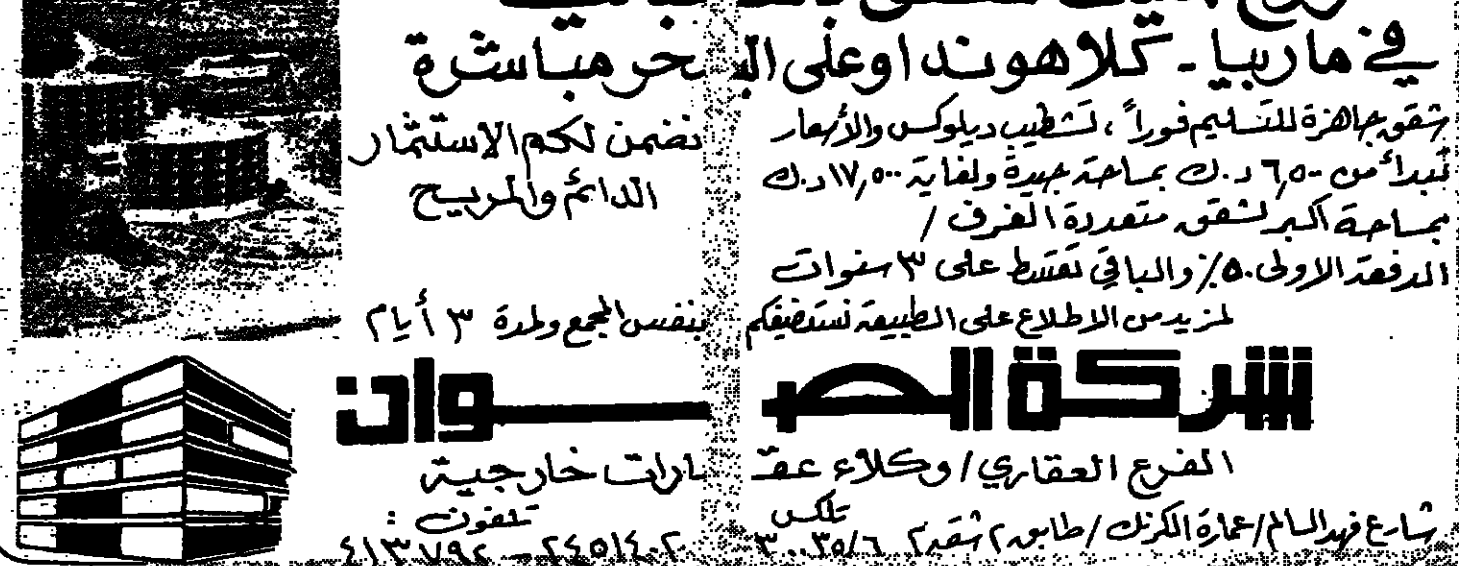 في ماربيا - كلاهوندا او على البحر مباشرة
شقق جاهزة للتسليم فوراً، تشطيب ديلوكس والأسعار
تبدأ من ٦,٥٠٠ د.ك بمساحة جيدة ولغاية ١٧,٥٠٠ د.ك
بمساحة اكبر لشقق متعددة الغرف /
الدفعة الاولى ٥٠٪ والباقي تقسط على ٣ سنوات
نضمن لكم الاستثمار
الدائم والمريح
لمزيد من الاطلاع على الطبيعة نستضيفكم بنفس المجمع ولمدة ٣ أيام
شركة الصوان
الفرع العقاري / وكلاء عقارات خارجية
شارع فهد السالم / عمارة الكرنك / طابق ٢ شقة ٢
تلكس ٣٠٠٣٥/٦
تلفون : ٢٤٥١٤٠٢ - ٤١٣٧٩٢